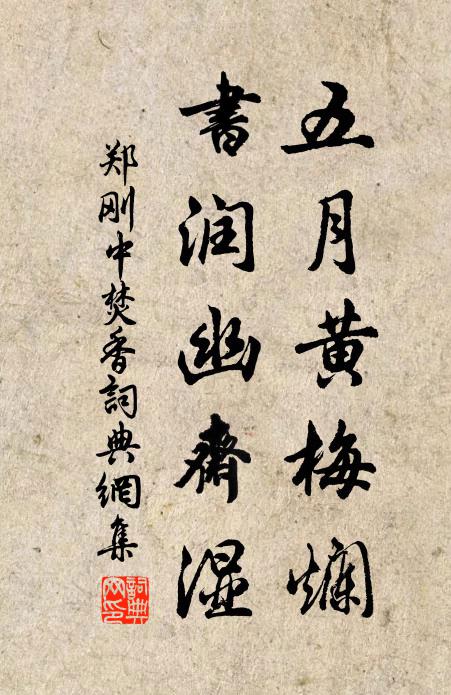 五月黄梅烂
书润幽斋湿
郑刚中焚香詞典網集
詞典网印